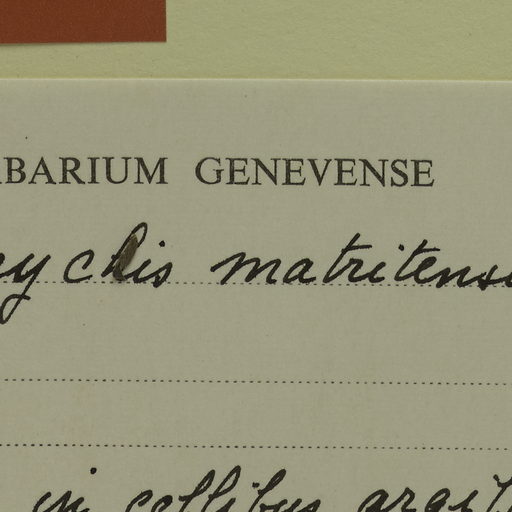 RBARIUM GENEVENSE
cychis matritensi
in collibus argil